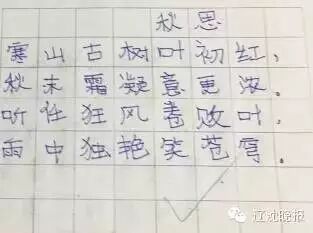 秋思
寒山古树叶初红,
秋末霜凝意更浓。
听任狂风卷败叶,
雨中独艳笑苍穹。
辽沈晚报